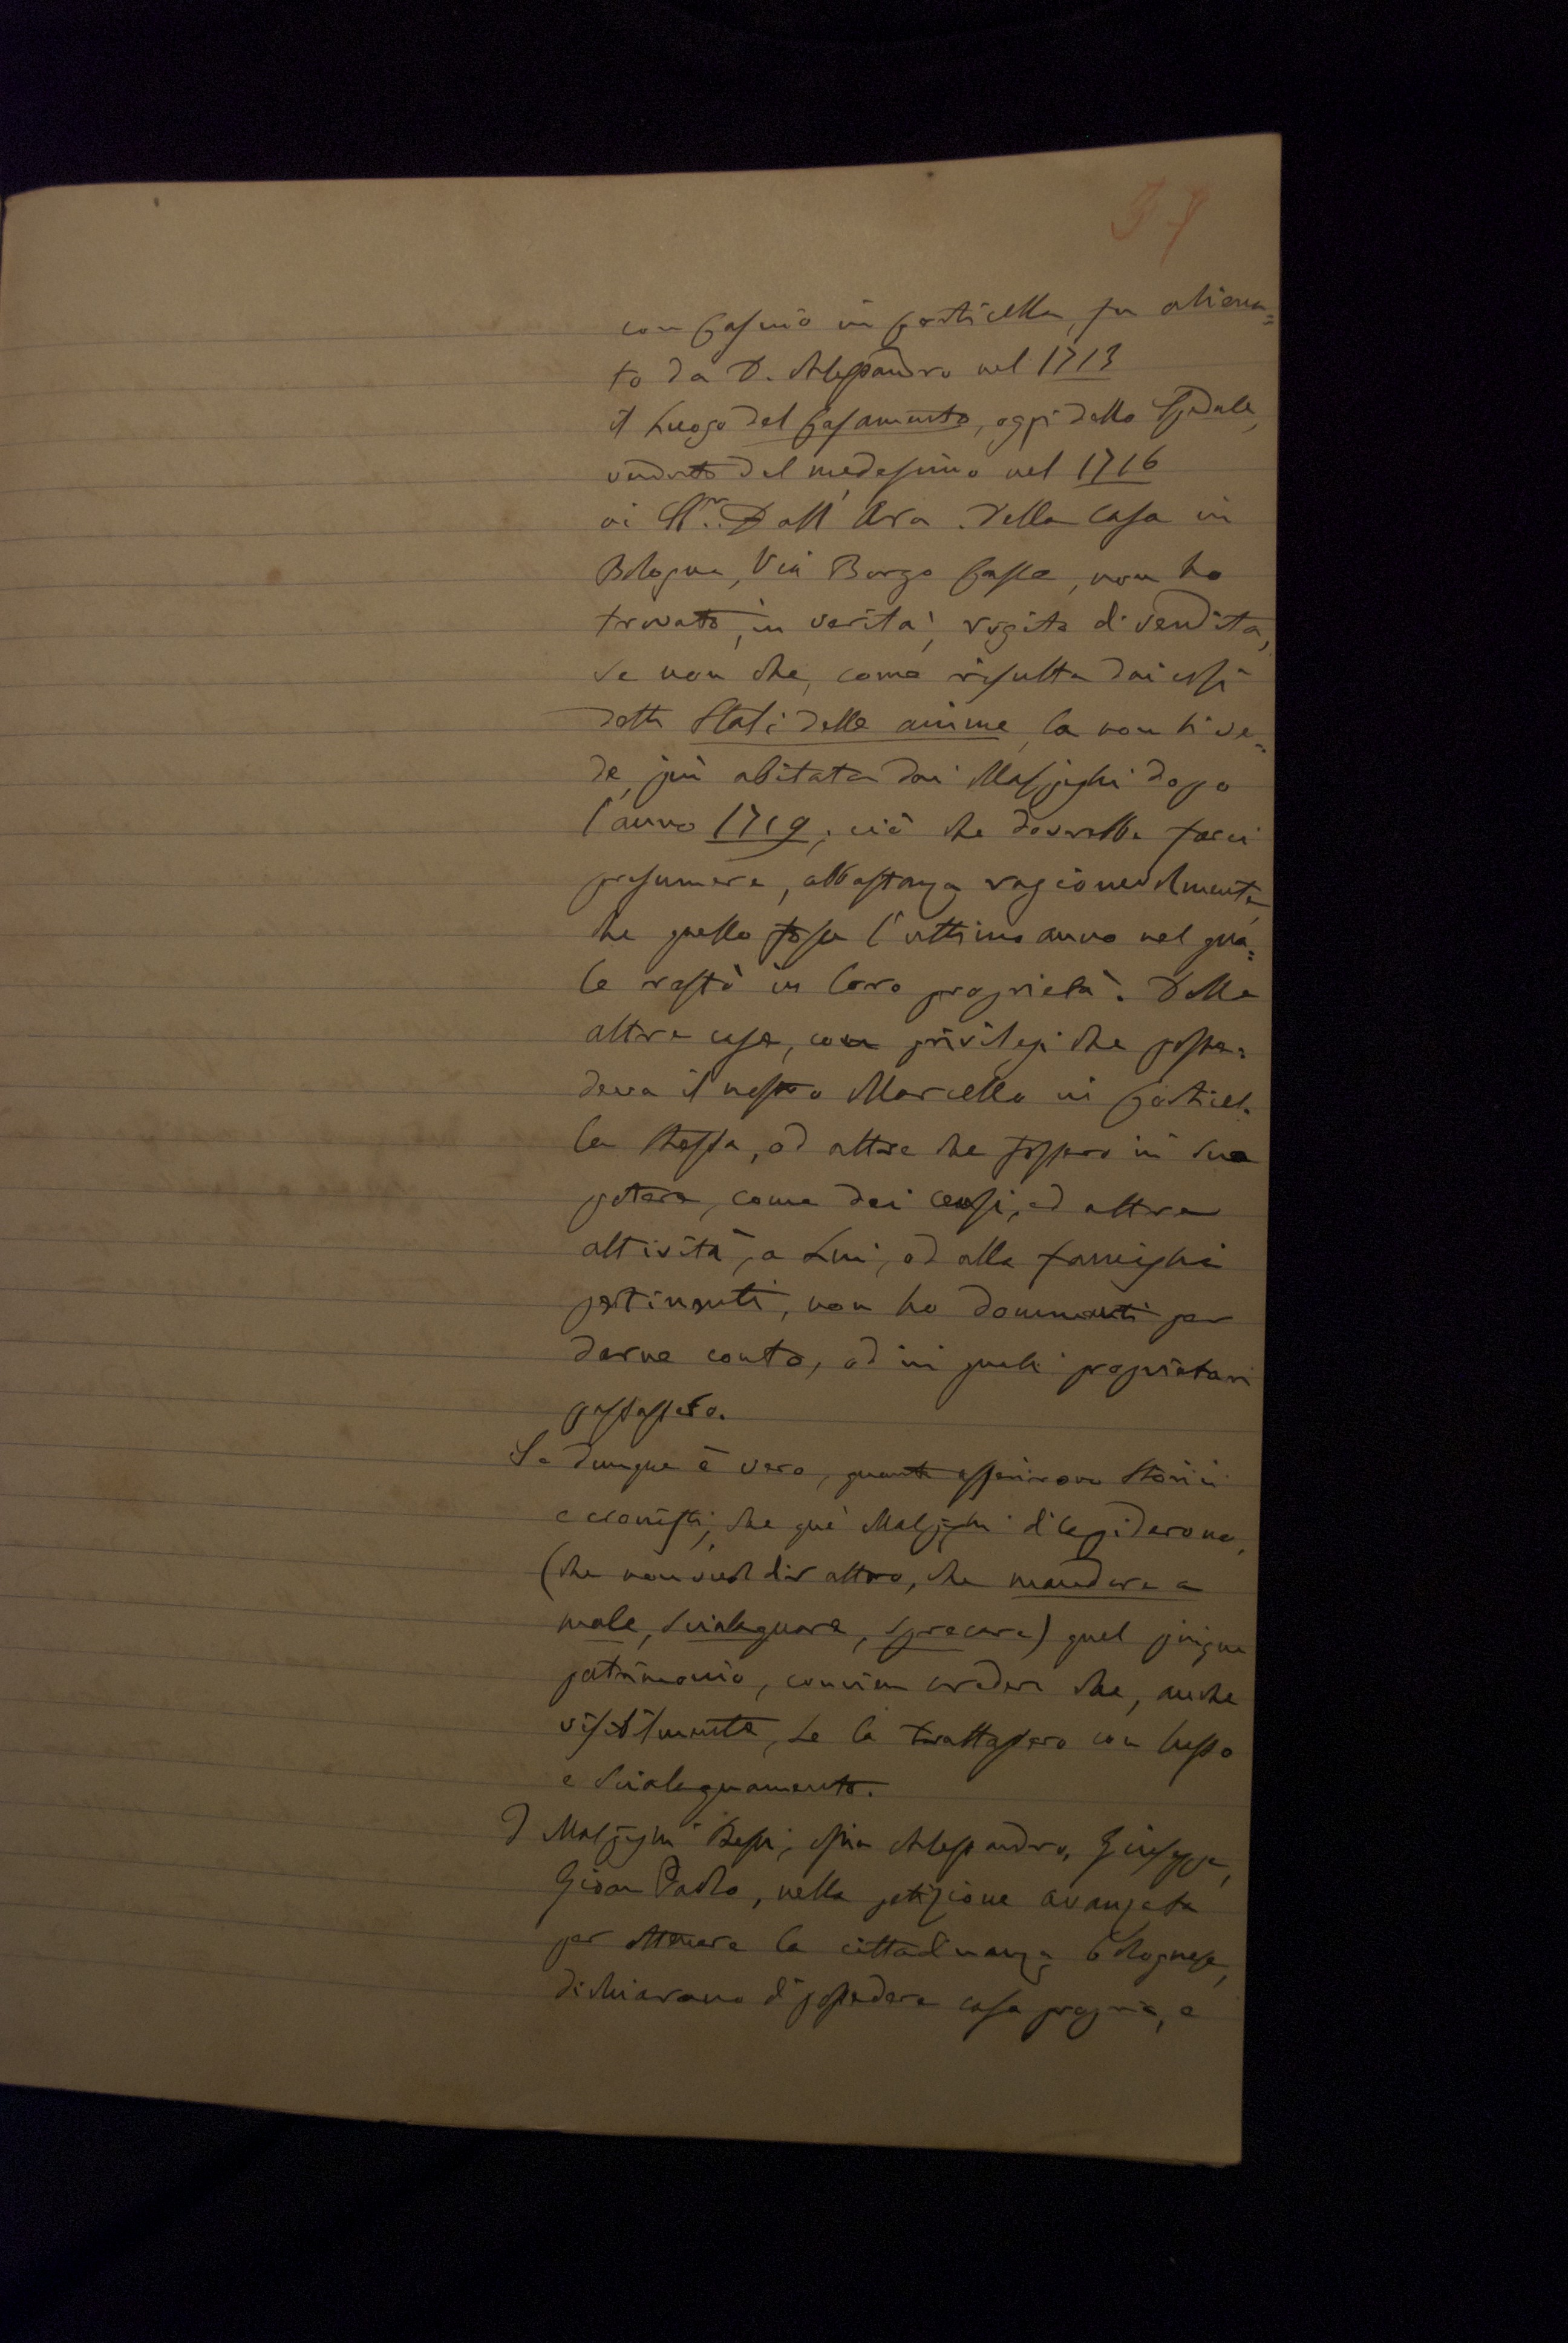 37
con Casino in Corticella, fu aliena=
to da D. Alessandro nel 1713
il Luogo del Casamento, oggi dello Spedale,
venduto dal medesimo nel 1716
ai Sr. Dall'Ara. Della casa in
Bologna, Via Borgo Casse, non ho
trovato, in verità, rogito di vendita,
se non che, come risulta dai così
detti Stati delle anime, la non si ve=
de più abitata dai Malpighi dopo
l'anno 1719; ciò che dovrebbe farci
presumere, abbastanza ragionevolmente,
che quello fosse l'ultimo anno nel qua=
le restò in loro proprietà. Delle
altre case, con privilegi che posse=
deva il nostro Marcello in Corticel=
la stessa, od altre che fossero in suo
potere, come dei censi, ed altre
attività, a Lui, od alla famiglia
pertinenti, non ho documenti per
darne conto, od in quali proprietari
passassero.
Se dunque è vero, quanto asserirono storici
e cronisti, che que' Malpighi dilapidarono,
(che non vuol dir altro, che mandare a
male, scialaquare, sprecare) quel pingue
patrimonio, convien credere che, anche
visibilmente, se la trattassero con lusso
e scialaquamento.
I Malpighi Bessi, ossia Alessandro, Giuseppe,
Gioan Paolo, nella petizione avanzata
per ottenere la cittadinanza bolognese,
dichiarano di possedere casa propria, e